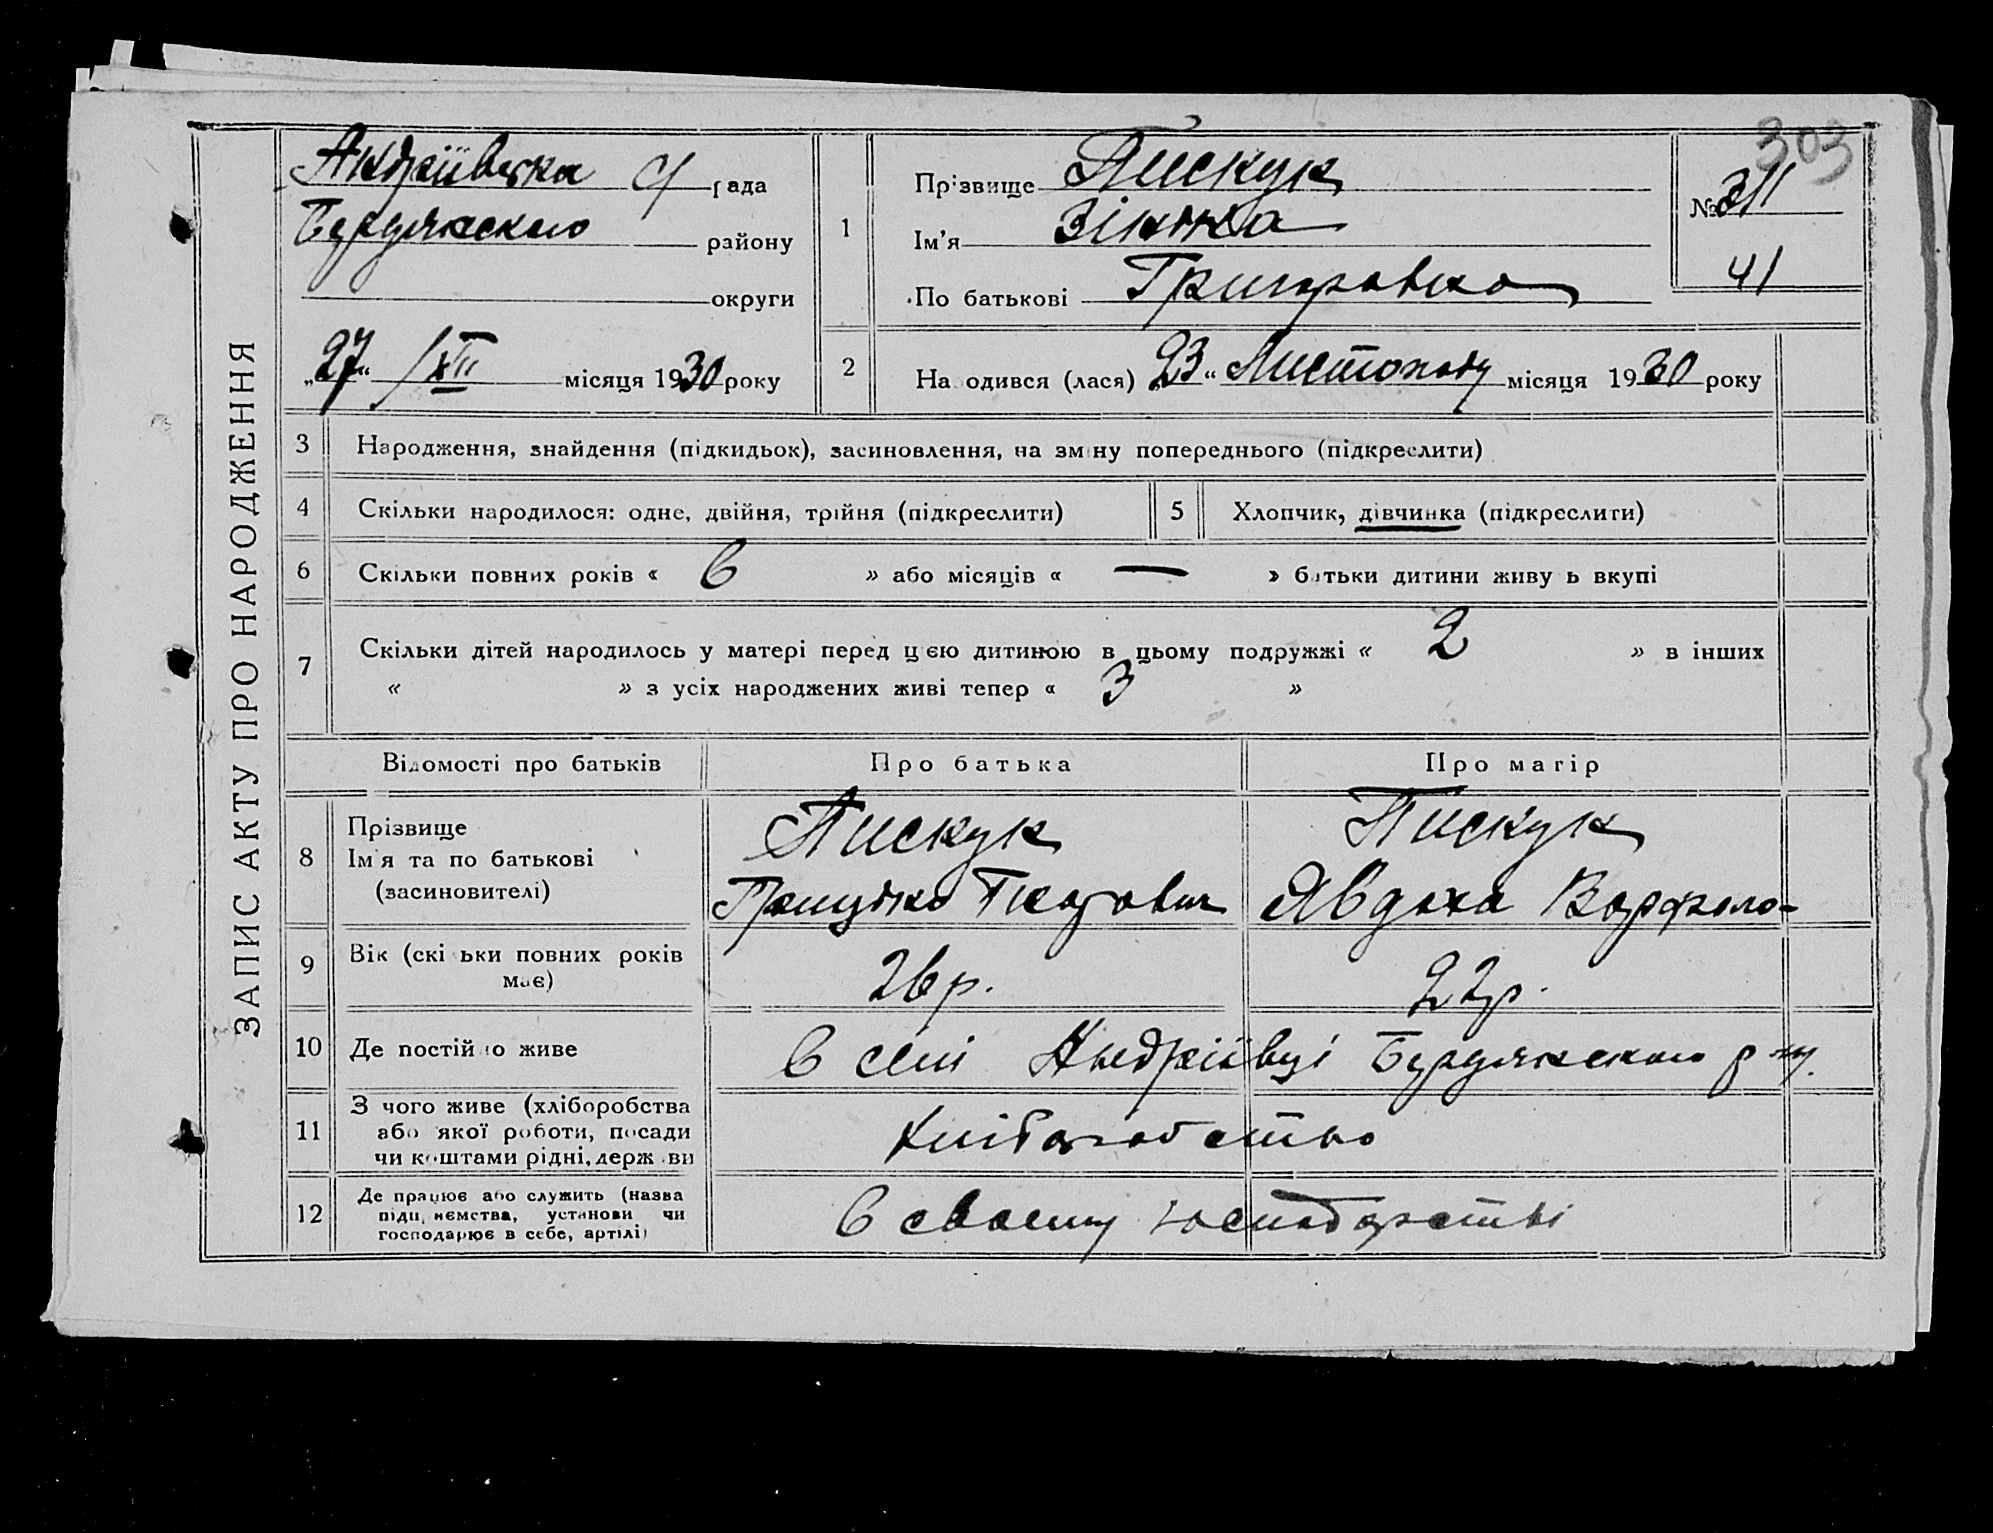 303
ЗАПИС АКТУ ПРО НАРОДЖЕННЯ
Андріївська с/рада
району
округи
„27“ /XII місяця 1930 року
1
Прізвище Пискун
Ім'я Зінька
По батькові
№ 311
41
2 Народився (лася) „23“ Листопаду місяця 1930 року
3 Народження, знайдення (підкидьок), засиновлення, на зміну попереднього (підкреслити)
4 Скільки народилося: одне, двійня, трійня (підкреслити) 5 Хлопчик, дівчинка (підкреслити)
6 Скільки повних років « 6 » або місяців « — » батьки дитини живуть вкупі
7 Скільки дітей народилось у матері перед цією дитиною в цьому подружжі « 2 » в інших
« » з усіх народжених живі тепер « 3 »
Відомості про батьків Про батька Про матір
8 Прізвище
Ім'я та по батькові
(засиновителі)
Пискун
Пискун
Явдоха Варфоло-
9 Вік (скільки повних років
має)
26 р. 22 р.
10 Де постійно живе
в селі Андріївці
11 З чого живе (хліборобства
або якої роботи, посади
чи коштами рідні, держави
Хліборобство
12 Де працює або служить (назва
підприємства, установи чи
господарює в себе, артілі)
в своєму господарстві